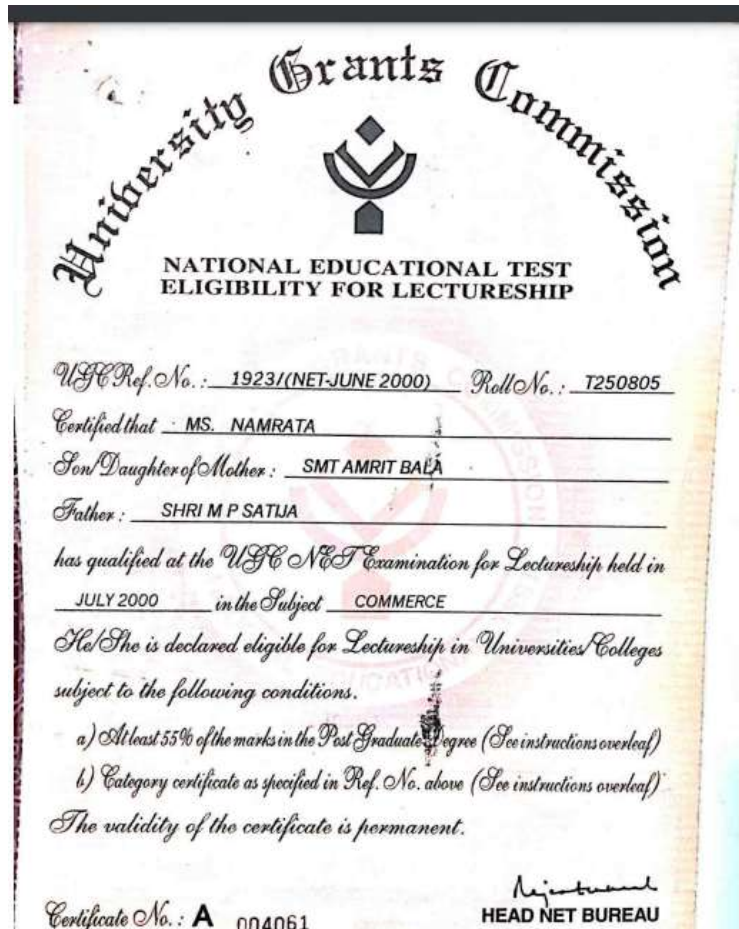 University Grants Commission
NATIONAL EDUCATIONAL TEST
ELIGIBILITY FOR LECTURESHIP
UGC Ref. No. : 1923/(NET-JUNE 2000) Roll No. : T250805
Certified that MS. NAMRATA
Son/Daughter of Mother : SMT AMRIT BALA
Father : SHRI M P SATIJA
has qualified at the UGC NET Examination for Lectureship held in
JULY 2000 in the Subject COMMERCE
He/She is declared eligible for Lectureship in Universities/Colleges
subject to the following conditions.
a) At least 55% of the marks in the Post Graduate Degree (See instructions overleaf)
b) Category certificate as specified in Ref. No. above (See instructions overleaf)
The validity of the certificate is permanent.
Certificate No. : A 004061
HEAD NET BUREAU